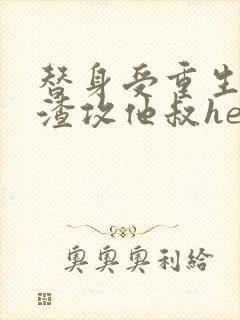 替身受重生
渣攻他叔he
奥奥奥利給